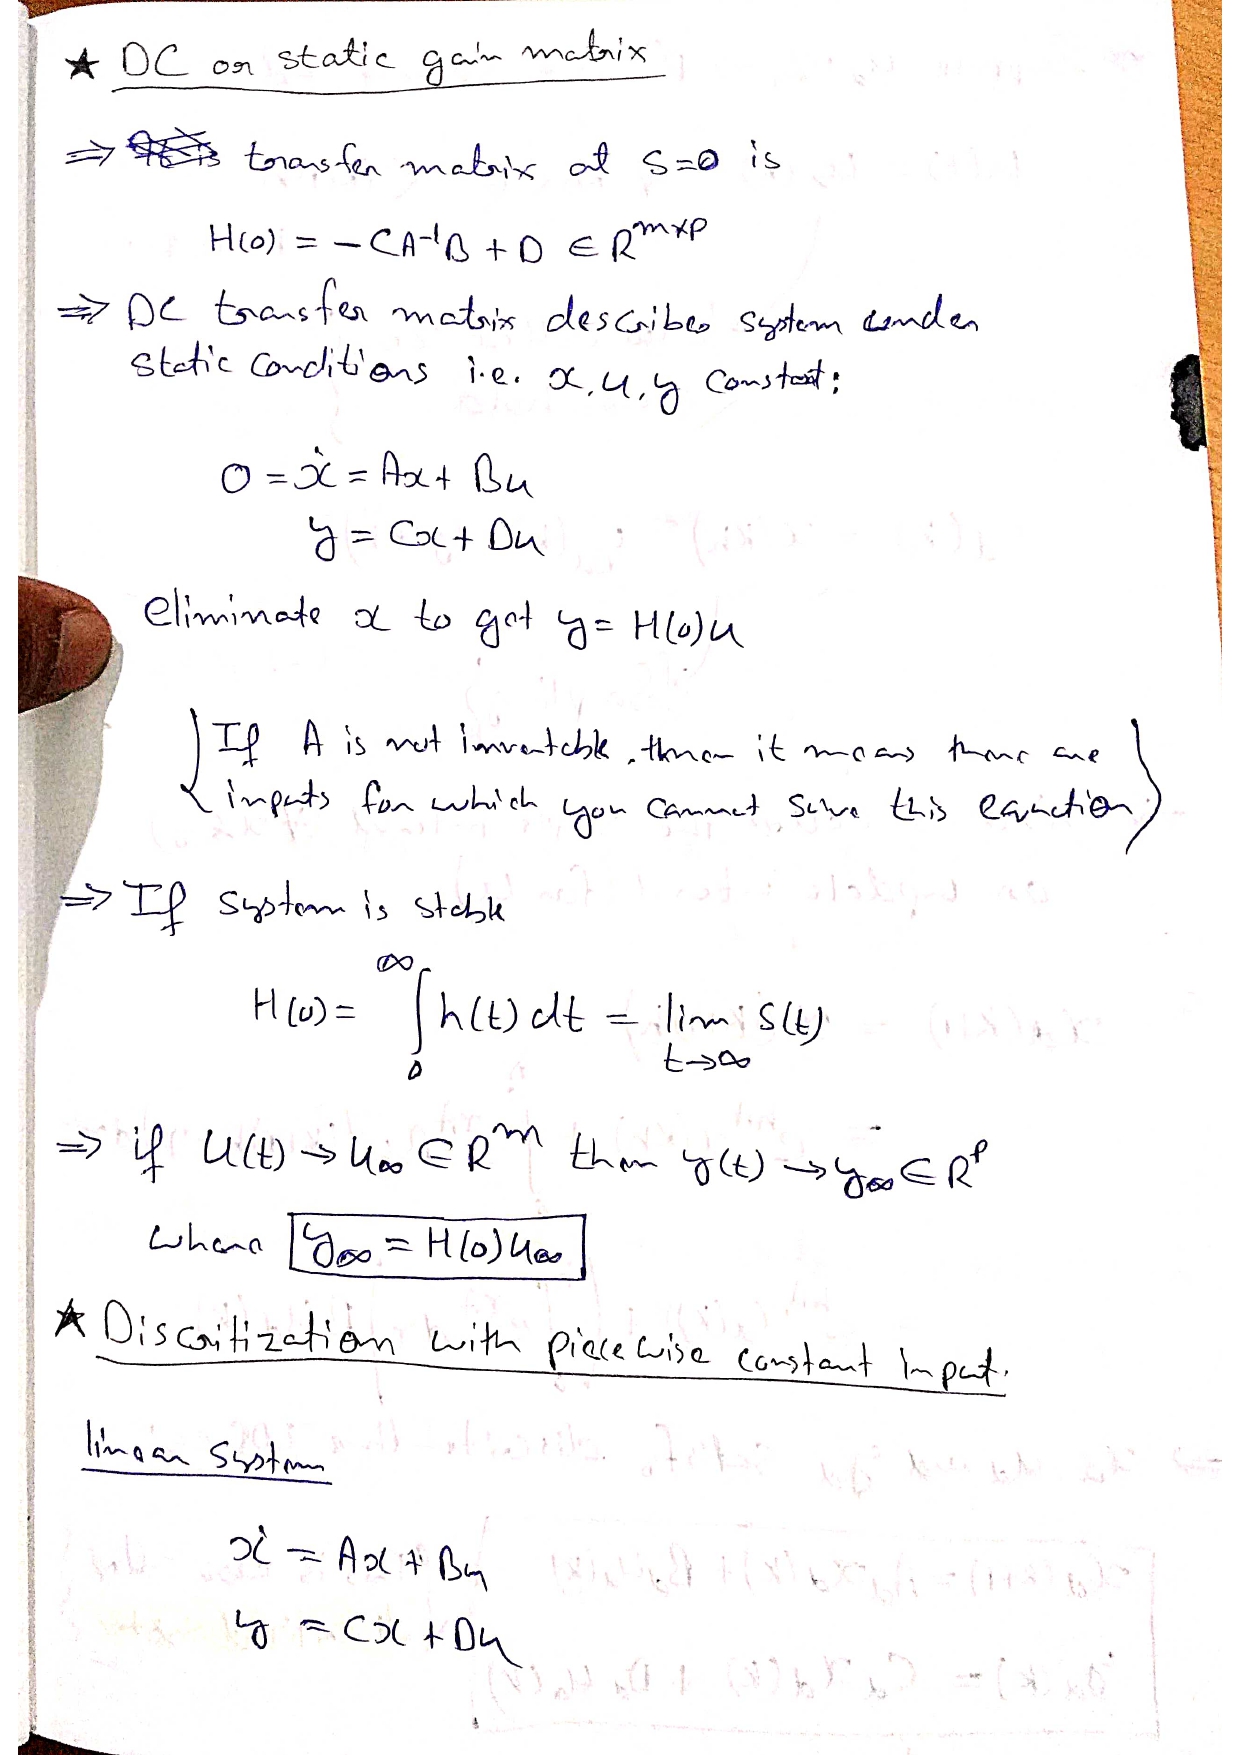 ★ DC or static gain matrix
⇒ transfer matrix at s=0 is
H(0) = -CA⁻¹B + D ∈ R^{m×p}
⇒ DC transfer matrix describes system under
static conditions i.e. x, u, y constant:
0 = ẋ = Ax + Bu
y = Cx + Du
eliminate x to get y = H(0)u
{If A is not invertable, then it means there are
inputs for which you cannot solve this equation}
⇒ If system is stable
H(0) = ∫₀^∞ h(t) dt = lim_{t→∞} s(t)
⇒ if u(t) → u∞ ∈ R^m then y(t) → y∞ ∈ R^p
where y∞ = H(0)u∞
★ Discritization with piecewise constant Input.
linear system
ẋ = Ax + Bu
y = Cx + Du